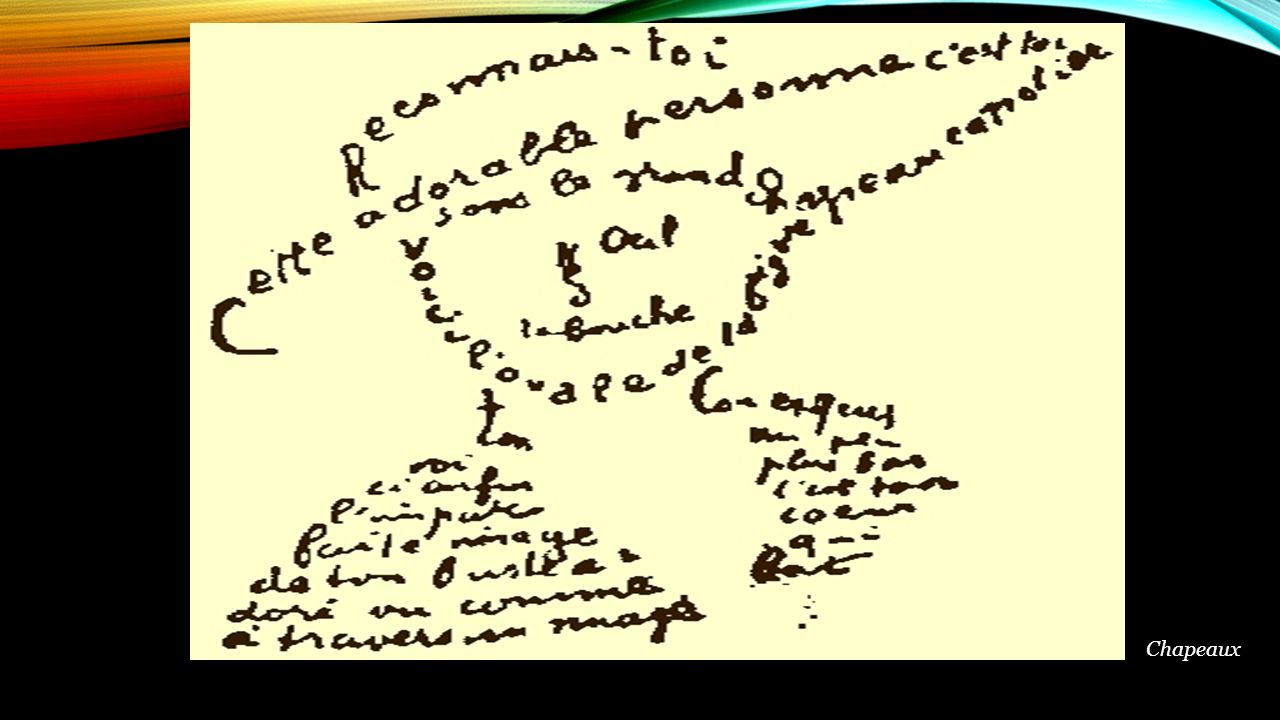 Reconnais-toi
Cette adorable personne c'est toi
sous le grand chapeau canotier
Oeil
Nez
la bouche
Voici l'ovale de ta figure
Ton
Cou exquis
voi
ci enfin
l'impar
faite image
de ton buste a
doré vu comme
à travers un nuage
un peu
plus bas
c'est ton
coeur
qui
bat
Chapeaux